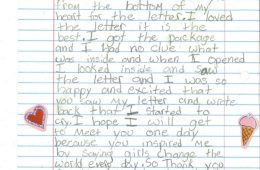 from the bottom of my
heart for the letter. I loved
the letter it is the
best. I got the package
and I had no clue what
was inside and when I opened
I looked inside and saw
the letter and I was so
happy and excited that
you saw my letter and write
back that I started to
cry. I hope I will get
to meet you one day
because you inspired me
by saying girls change the
world every day. So Thank you